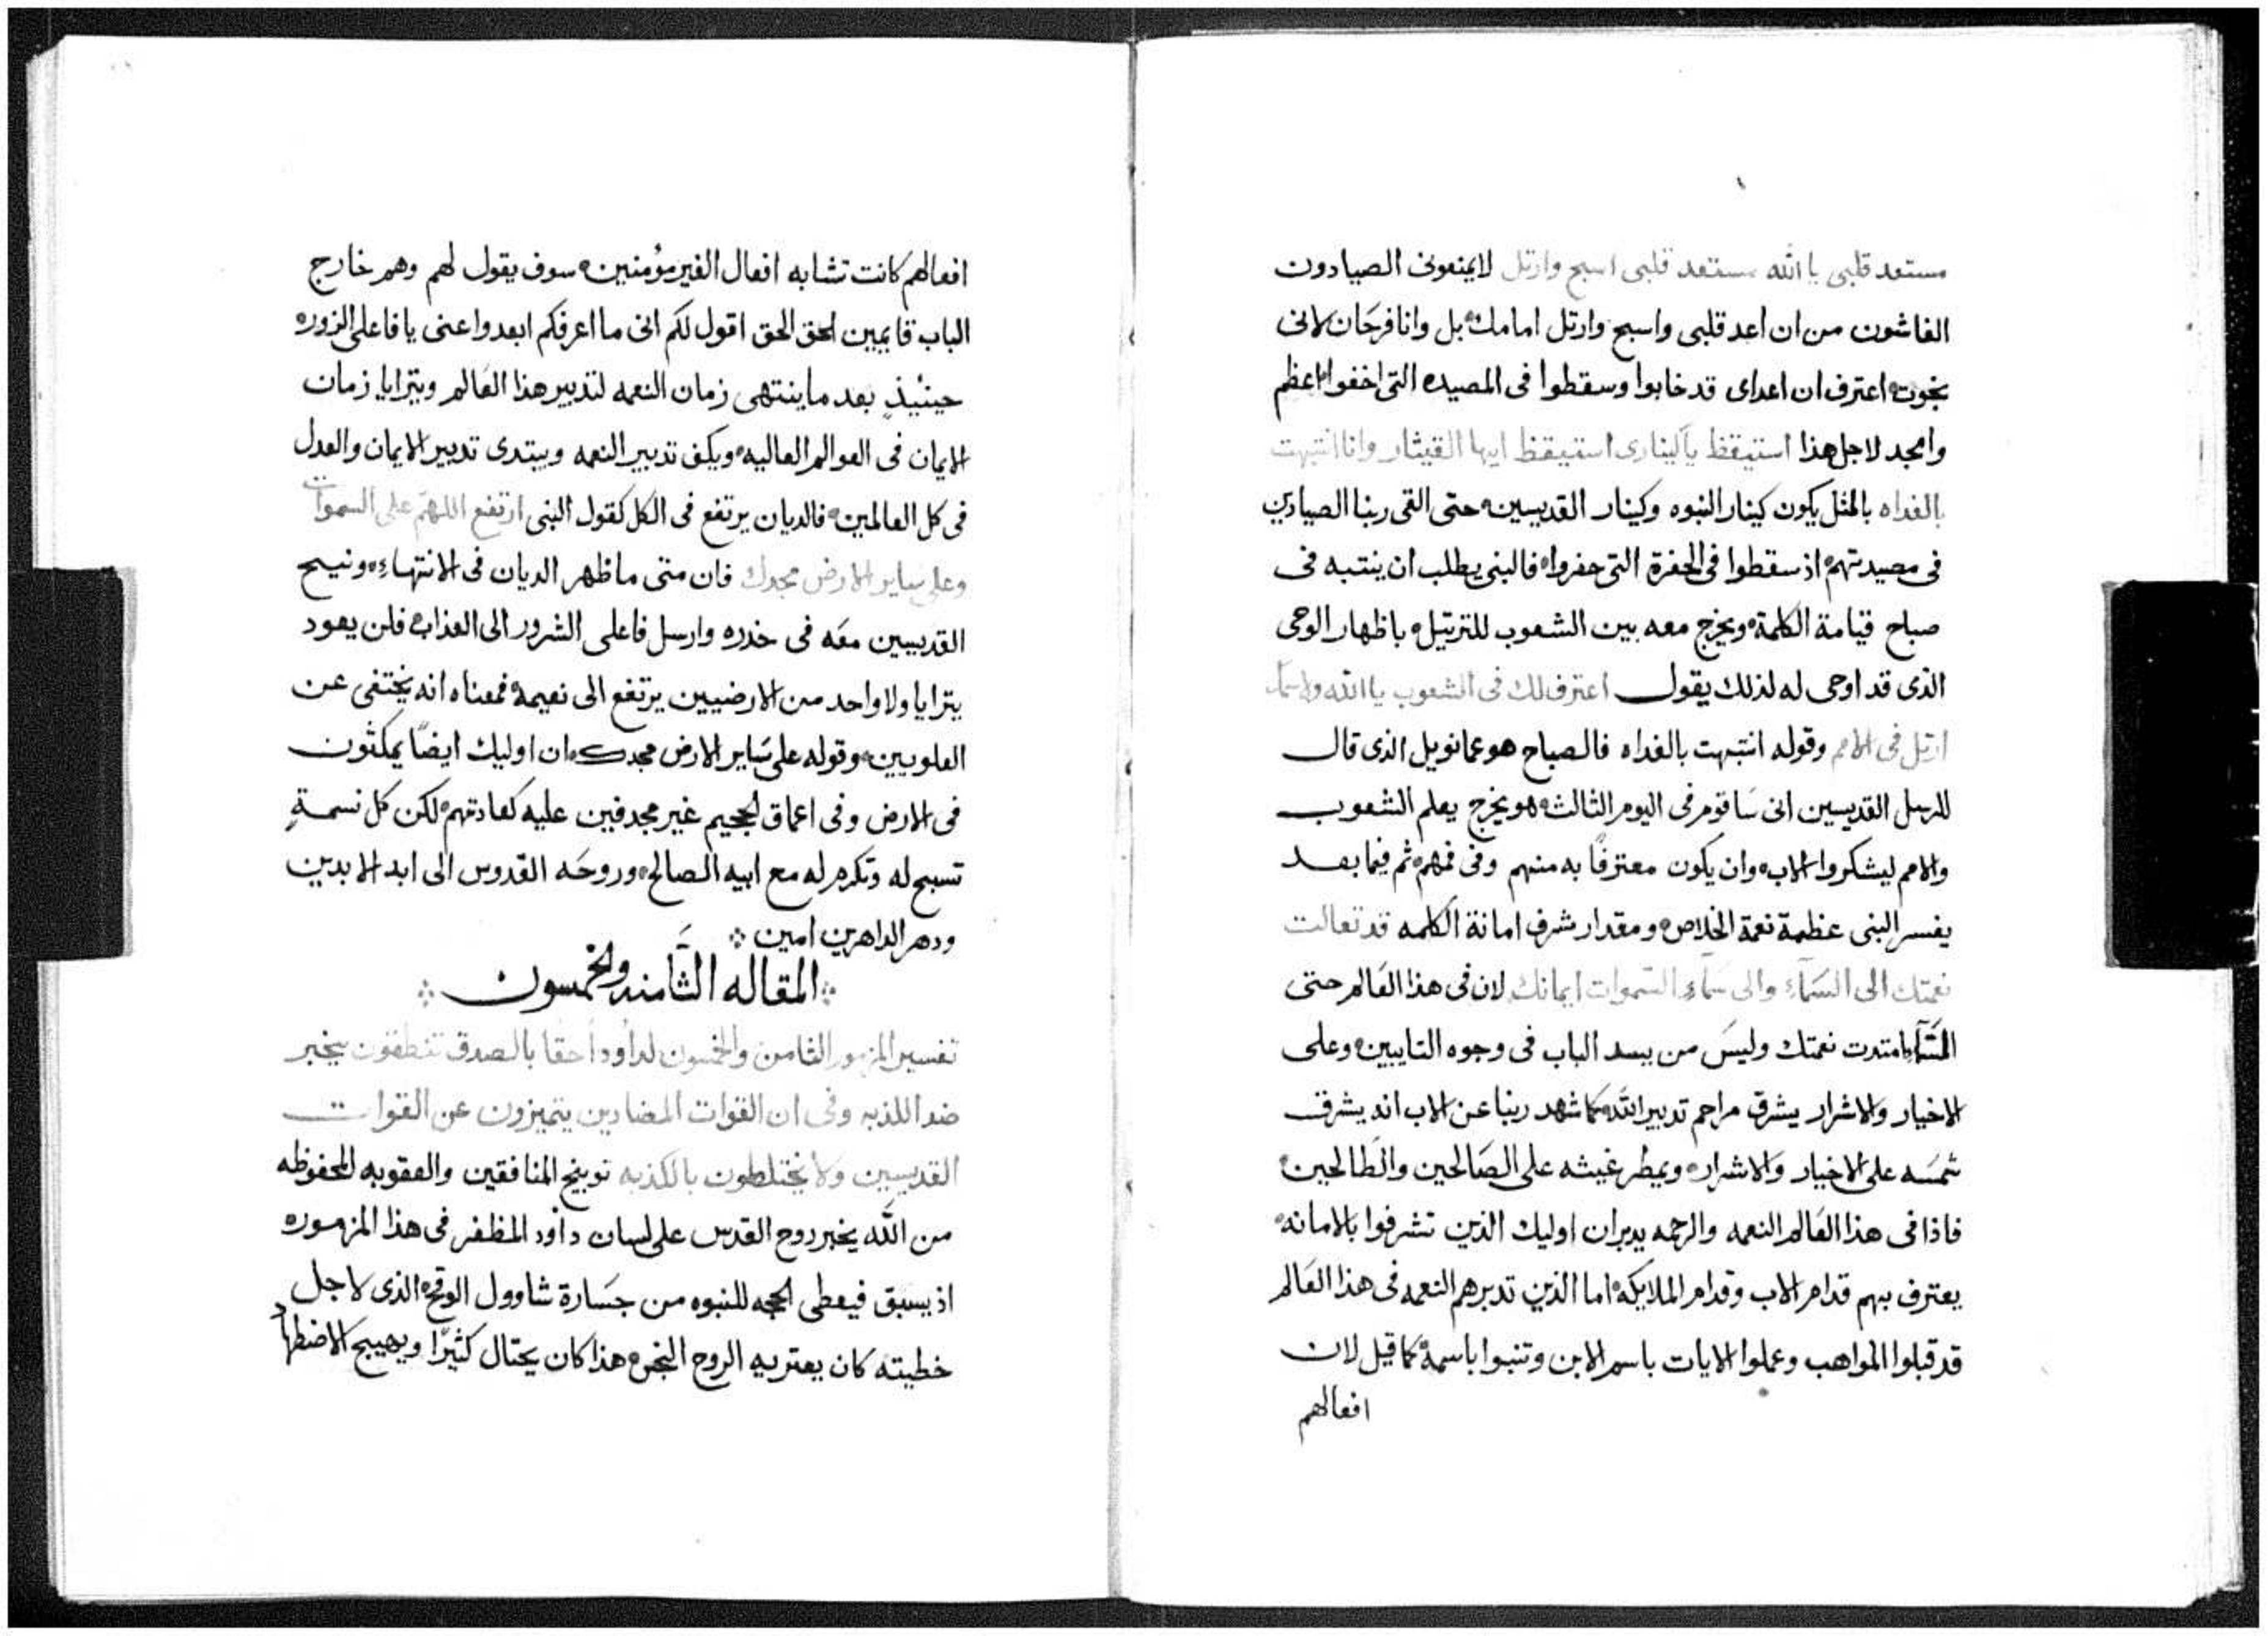 مستعد قلبى يا الله مستعد قلبى اسبح وارتل لا يمنعونى الصيادون
الغاشون من ان اعد قلبى واسبح وارتل امامك بل وانا فرحَان لانى
نجوت اعترف ان اعداى قد خابوا وسقطوا فى المصيده التى اخفوا اعظم
وامجد لاجل هذا استيقظ يا كينارى استيقظ ايها القيثار وانا انتبهت
بالغداه بالمثل يكون كينار النبوه وكينار القديسين حتى القى ربنا الصيادين
فى مصيدتهم اذ سقطوا فى الحفرة التى حفروا فالنبى يطلب ان ينتبه فى
صباح قيامة الكلمة ويخرج معه بين الشعوب للترتيل باظهار الوحى
الذى قد اوحى له لذلك يقول اعترف لك فى الشعوب يا الله ولاسمك
ارتل فى الامم وقوله انتبهت بالغداه فالصباح هو عمانويل الذى قال
للرسل القديسين انى سَاقوم فى اليوم الثالث هو يخرج يعلم الشعوب
والامم ليشكروا الاب وان يكون معترفًا به منهم وفى فمهم ثم فيما بعد
يفسر النبى عظمة نعمة الخلاص ومقدار شرف امانة الكلمه قد تعالت
نعمتك الى السَمآء والى سمآء السموات ايمانك لان فى هذا العَالم حتى
السَمآء امتدت نعمتك وليسَ من يسد الباب فى وجوه التايبين وعلى
الاخيار والاشرار يشرق مراحم تدبير الله كما شهد ربنا عن الاب انه يشرق
شمسَه على الاخيار والاشرار ويمطر غيثه على الصَالحين والطَالحين
فاذا فى هذا العَالم النعمه والرحمه يدبران اوليك الذين تشرفوا بالامانه
يعترف بهم قدام الاب وقدام الملايكه اما الذين تدبرهم النعمه فى هذا العَالم
قد قبلوا المواهب وعملوا الايات باسم الابن وتنبوا باسمه كما قيل لان
افعالهم
افعالهم كانت تشابه افعال الغير مؤمنين سوف يقول لهم وهم خارج
الباب قايمين الحق الحق اقول لكم انى ما اعرفكم ابعدوا عنى يا فاعلى الزور
حينيُذٍ بعد ما ينتهى زمان النعمه لتدبير هذا العَالم ويترايا زمان
الايمان فى العوالم العاليه ويكف تدبير النعمه ويبتدى تدبير الايمان والعدل
فى كل العالمين فالديان يرتفع فى الكل كقول النبى ارتفع اللهم على السموات
وعلى ساير الارض مجدك فان متى ما ظهر الديان فى الانتهاء ونيح
القديسين معَه فى خدره وارسل فاعلى الشرور الى العذاب فلن يعود
يترايا ولا واحد من الارضيين يرتفع الى نعيمه فمعناه انه يختفى عن
العلويين وقوله على سَاير الارض مجدك ان اوليك ايضًا يمكثون
فى الارض وفى اعماق الجحيم غير مجدفين عليه كعادتهم لكن كل نسمةٍ
تسبح له وتكرم له مع ابيه الصالح وروحَه القدوس الى ابد الابدين
ودهر الداهرين امين
المقاله الثَّامنه والخمسون
تفسير المزمور الثامن والخمسون لداود احقًا بالصدق تنطقون يخبر
ضد اللذبه وفى ان القوات المضادين يتميزون عن القوات
القديسين ولا يختلطون بالكذبه توبيخ المنافقين والعقوبه المحفوظه
من الله يخبر روح القدس على لسان داود المظفر فى هذا المزمور
اذ يسبق فيعطى الحجه للنبوه من جسَارة شاوول الوقح الذى لاجل
خطيته كان يعتريه الروح النجس هذا كان يحتال كثيرًا ويهيج الاضطهاد